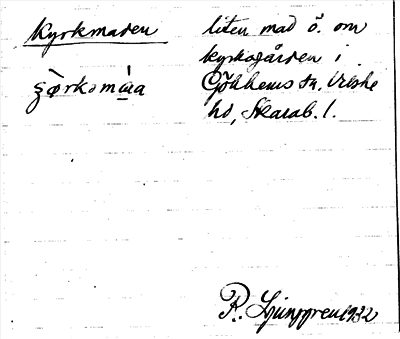 Kyrkmaden
liten mad ö. om
kyrkogården i
Gökhems sn. Vilske
hd, Skarab. l.
R. Ljunggren 1932